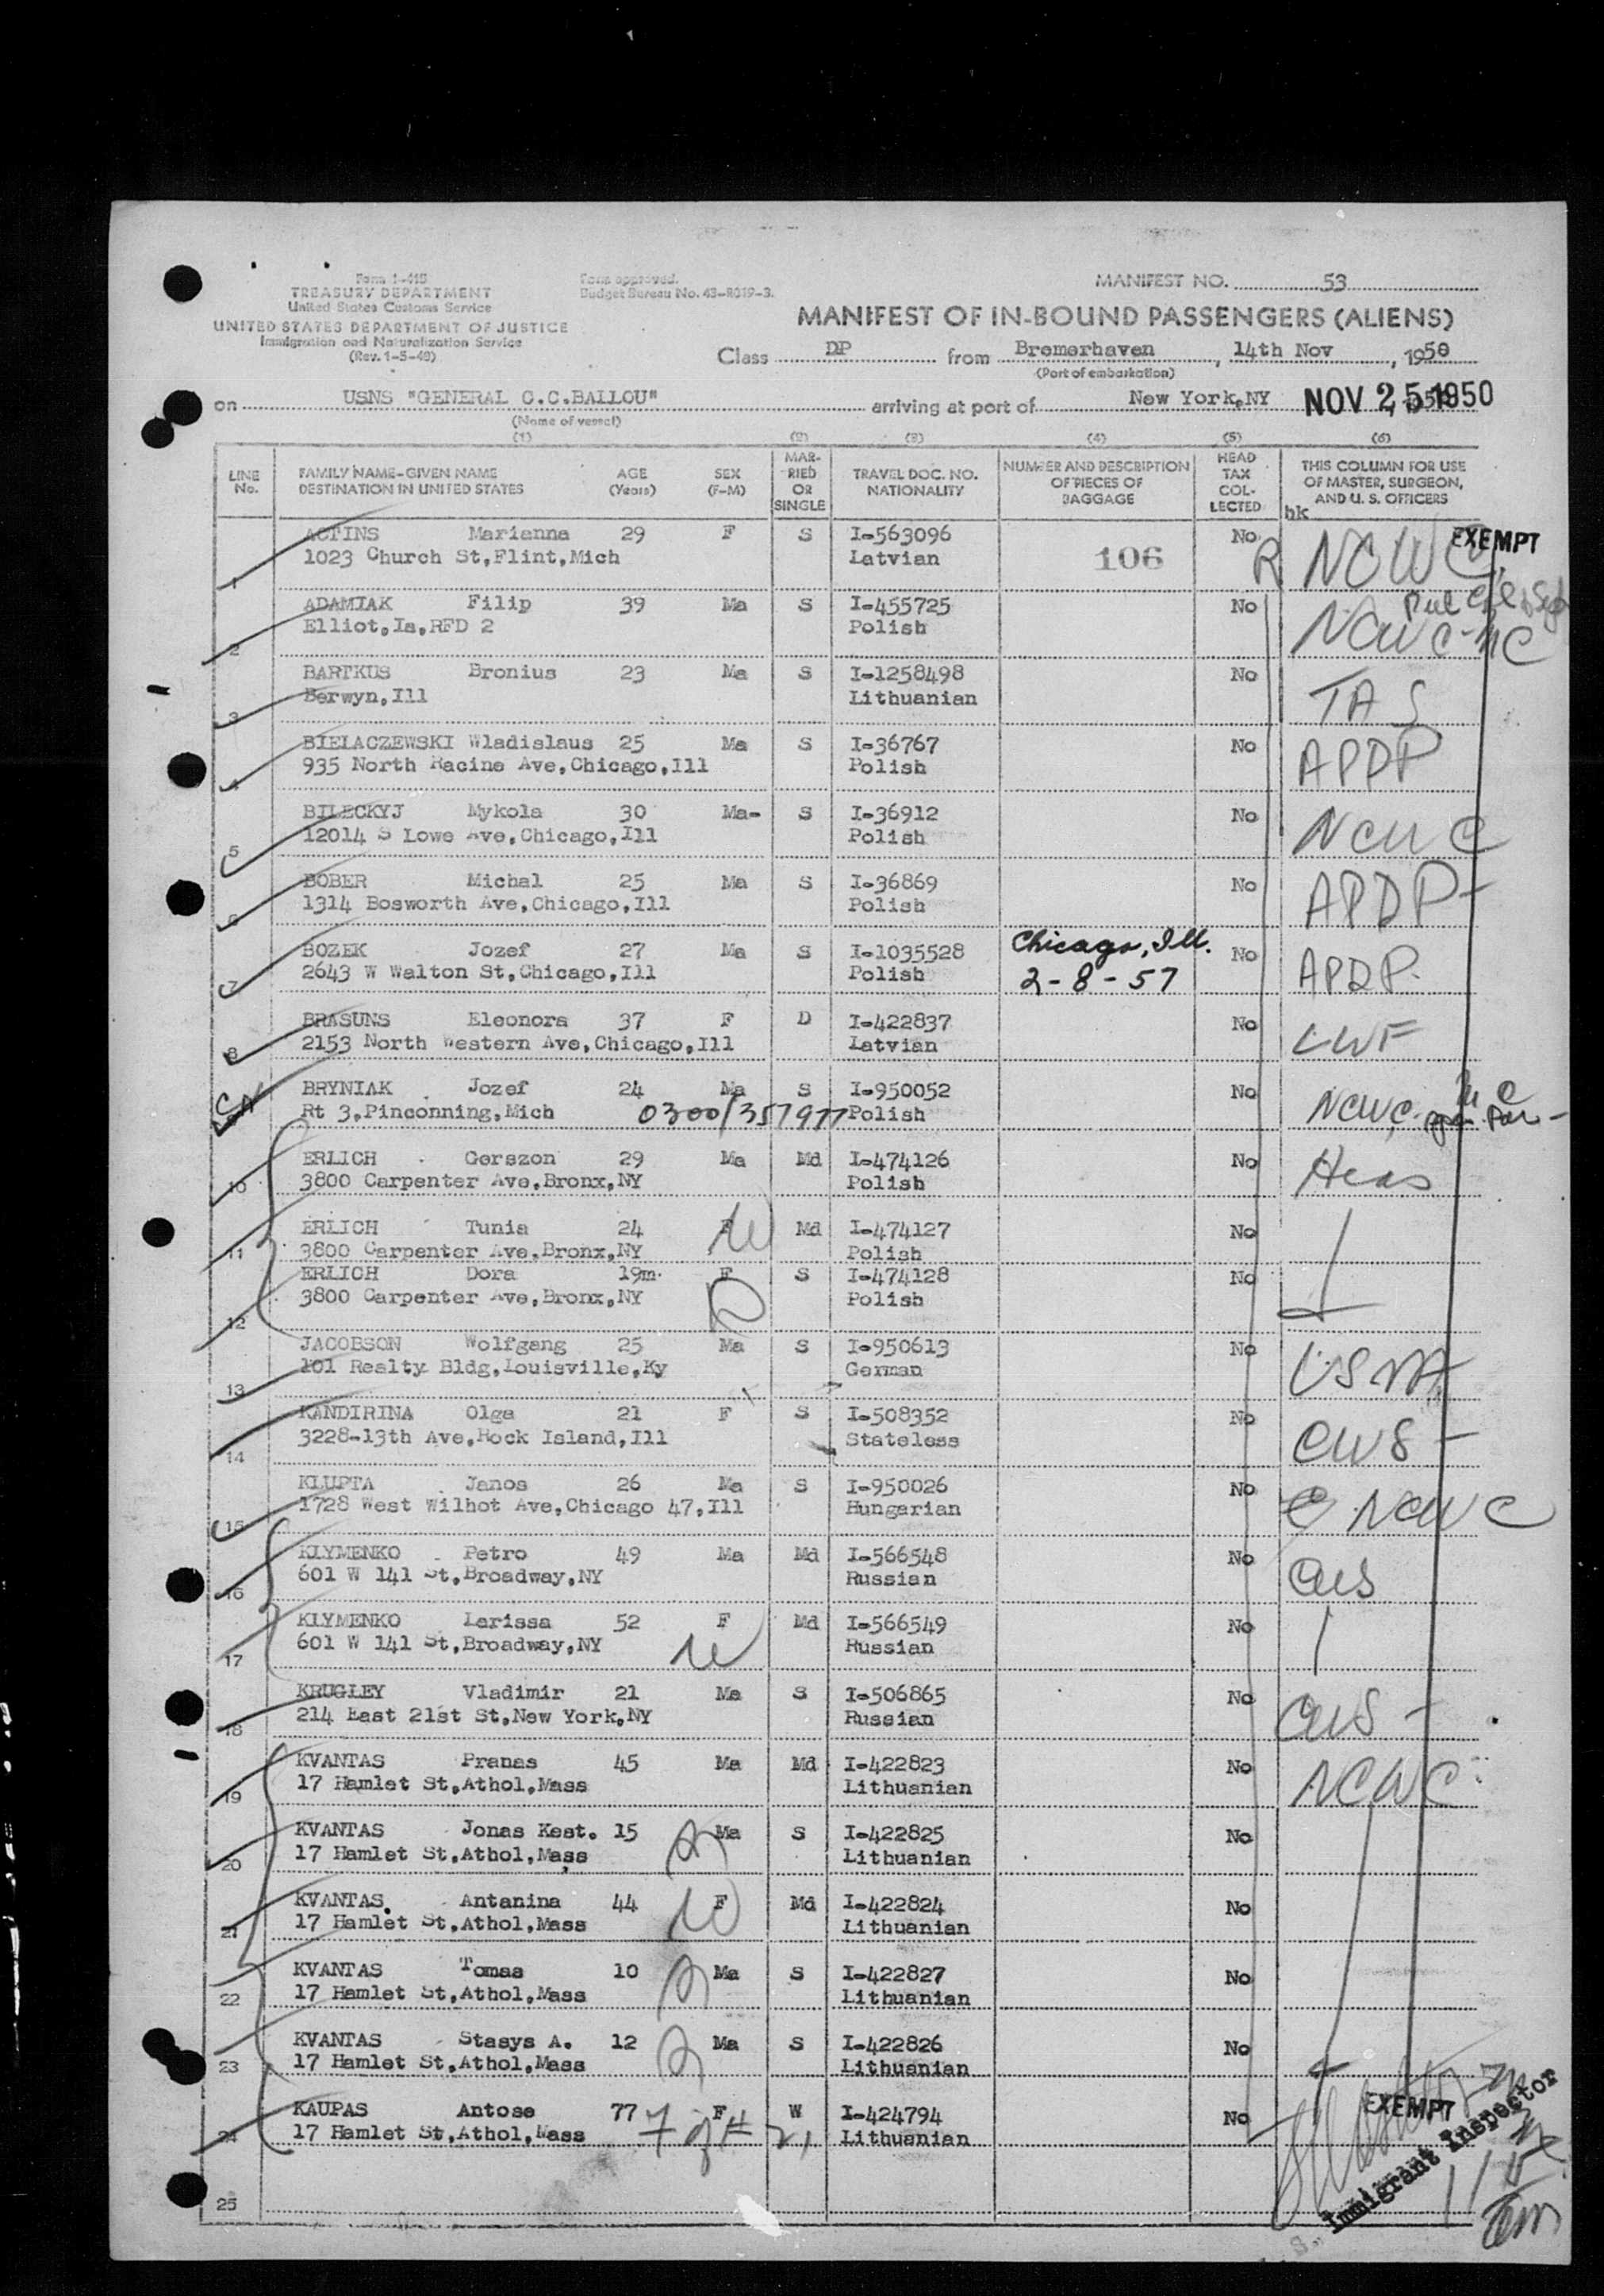 Form I-415
TREASURY DEPARTMENT
United States Customs Service
UNITED STATES DEPARTMENT OF JUSTICE
Immigration and Naturalization Service
(Rev. 1-5-49)
Form approved.
Budget Bureau No. 43-R019-3.
MANIFEST NO. 53
MANIFEST OF IN-BOUND PASSENGERS (ALIENS)
Class DP from Bremerhaven, 14th Nov, 1950
(Port of embarkation)
on USNS "GENERAL C.C.BALLOU" arriving at port of New York,NY NOV 25 1950
(Name of vessel)
(1) (2) (3) (4) (5) (6)
LINE No. FAMILY NAME-GIVEN NAME DESTINATION IN UNITED STATES AGE (Years) SEX (F-M) MARRIED OR SINGLE TRAVEL DOC. NO. NATIONALITY NUMBER AND DESCRIPTION OF PIECES OF BAGGAGE HEAD TAX COLLECTED THIS COLUMN FOR USE OF MASTER, SURGEON, AND U. S. OFFICERS
hk
ACTINS Marianna 29 F S I-563096 No R NCWC EXEMPT
1 1023 Church St,Flint,Mich Latvian 106
ADAMIAK Filip 39 Ma S I-455725 No NCWC-NC
2 Elliot,Ia,RFD 2 Polish
BARTKUS Bronius 23 Ma S I-1258498 No TAS
3 Berwyn,Ill Lithuanian
BIELACZEWSKI Wladislaus 25 Ma S I-36767 No APDP
4 935 North Racine Ave,Chicago,Ill Polish
BILECKYJ Mykola 30 Ma- S I-36912 No NCWC
5 12014 S Lowe Ave,Chicago,Ill Polish
BOBER Michal 25 Ma S I-36869 No APDP-
6 1314 Bosworth Ave,Chicago,Ill Polish
BOZEK Jozef 27 Ma S I-1035528 Chicago, Ill. No APDP.
7 2643 W Walton St,Chicago,Ill Polish 2-8-57
BRASUNS Eleonora 37 F D I-422837 No LWF
8 2153 North Western Ave,Chicago,Ill Latvian
BRYNIAK Jozef 24 Ma S I-950052 No NCWC.
Rt 3,Pinconning,Mich 0300/351977 Polish
ERLICH Gerszon 29 Ma Md I-474126 No Hias
10 3800 Carpenter Ave,Bronx,NY Polish
ERLICH Tunia 24 F W Md I-474127 No
11 3800 Carpenter Ave,Bronx,NY Polish
ERLICH Dora 19m. F S I-474128 No
12 3800 Carpenter Ave,Bronx,NY Polish
JACOBSON Wolfgang 25 Ma S I-950613 No USNA
13 101 Realty Bldg,Louisville,Ky German
KANDIRINA Olga 21 F S I-508352 No CWS -
14 3228-13th Ave,Rock Island,Ill Stateless
KLUPTA Janos 26 Ma S I-950026 No NCWC
15 1728 West Wilhot Ave,Chicago 47,Ill Hungarian
KLYMENKO Petro 49 Ma Md I-566548 No CWS
16 601 W 141 St,Broadway,NY Russian
KLYMENKO Larissa 52 F Md I-566549 No
17 601 W 141 St,Broadway,NY W Russian
KRUGLEY Vladimir 21 Ma S I-506865 No CWS -
18 214 East 21st St,New York,NY Russian
KVANTAS Pranas 45 Ma Md I-422823 No NCWC
19 17 Hamlet St,Athol,Mass Lithuanian
KVANTAS Jonas Kest. 15 Ma S I-422825 No
20 17 Hamlet St,Athol,Mass Lithuanian
KVANTAS. Antanina 44 W F Md I-422824 No
21 17 Hamlet St,Athol,Mass Lithuanian
KVANTAS Tomas 10 Ma S I-422827 No
22 17 Hamlet St,Athol,Mass Lithuanian
KVANTAS Stasys A. 12 Ma S I-422826 No
23 17 Hamlet St,Athol,Mass Lithuanian
KAUPAS Antose 77 F W I-424794 No EXEMPT
24 17 Hamlet St,Athol,Mass Lithuanian
25
Immigrant Inspector